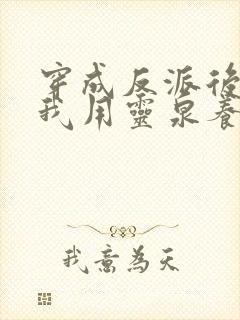 穿成反派後
我用靈泉養
我意為天